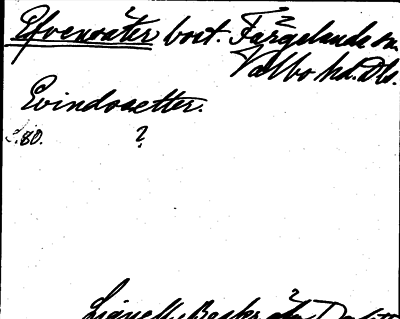 Efvensäter bost. Färgelanda sn.
Valbo hd. Dls.
Evindsætter.
s. 80. ?
Lignell, Beskr.